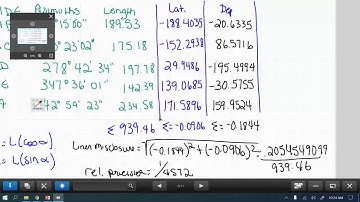 Azimuths Length Lat. Dep
°15'00" 189.53 -188.4035 -20.6335
°23'02" 175.18 -152.2938 86.5716
278°42'34" 197.78 29.9486 -195.4994
347°36'E 142.39 139.0685 -30.5755
42°59'23" 234.58 171.5896 159.9524
Σ 939.46 Σ=-0.0906 Σ=-0.1844
= L(cosα)
= L(sinα)
Linear misclosure = √(-0.1844)²+(-0.0906)² = .2054549099
939.46
rel. precision = 1/4572
10:24 AM